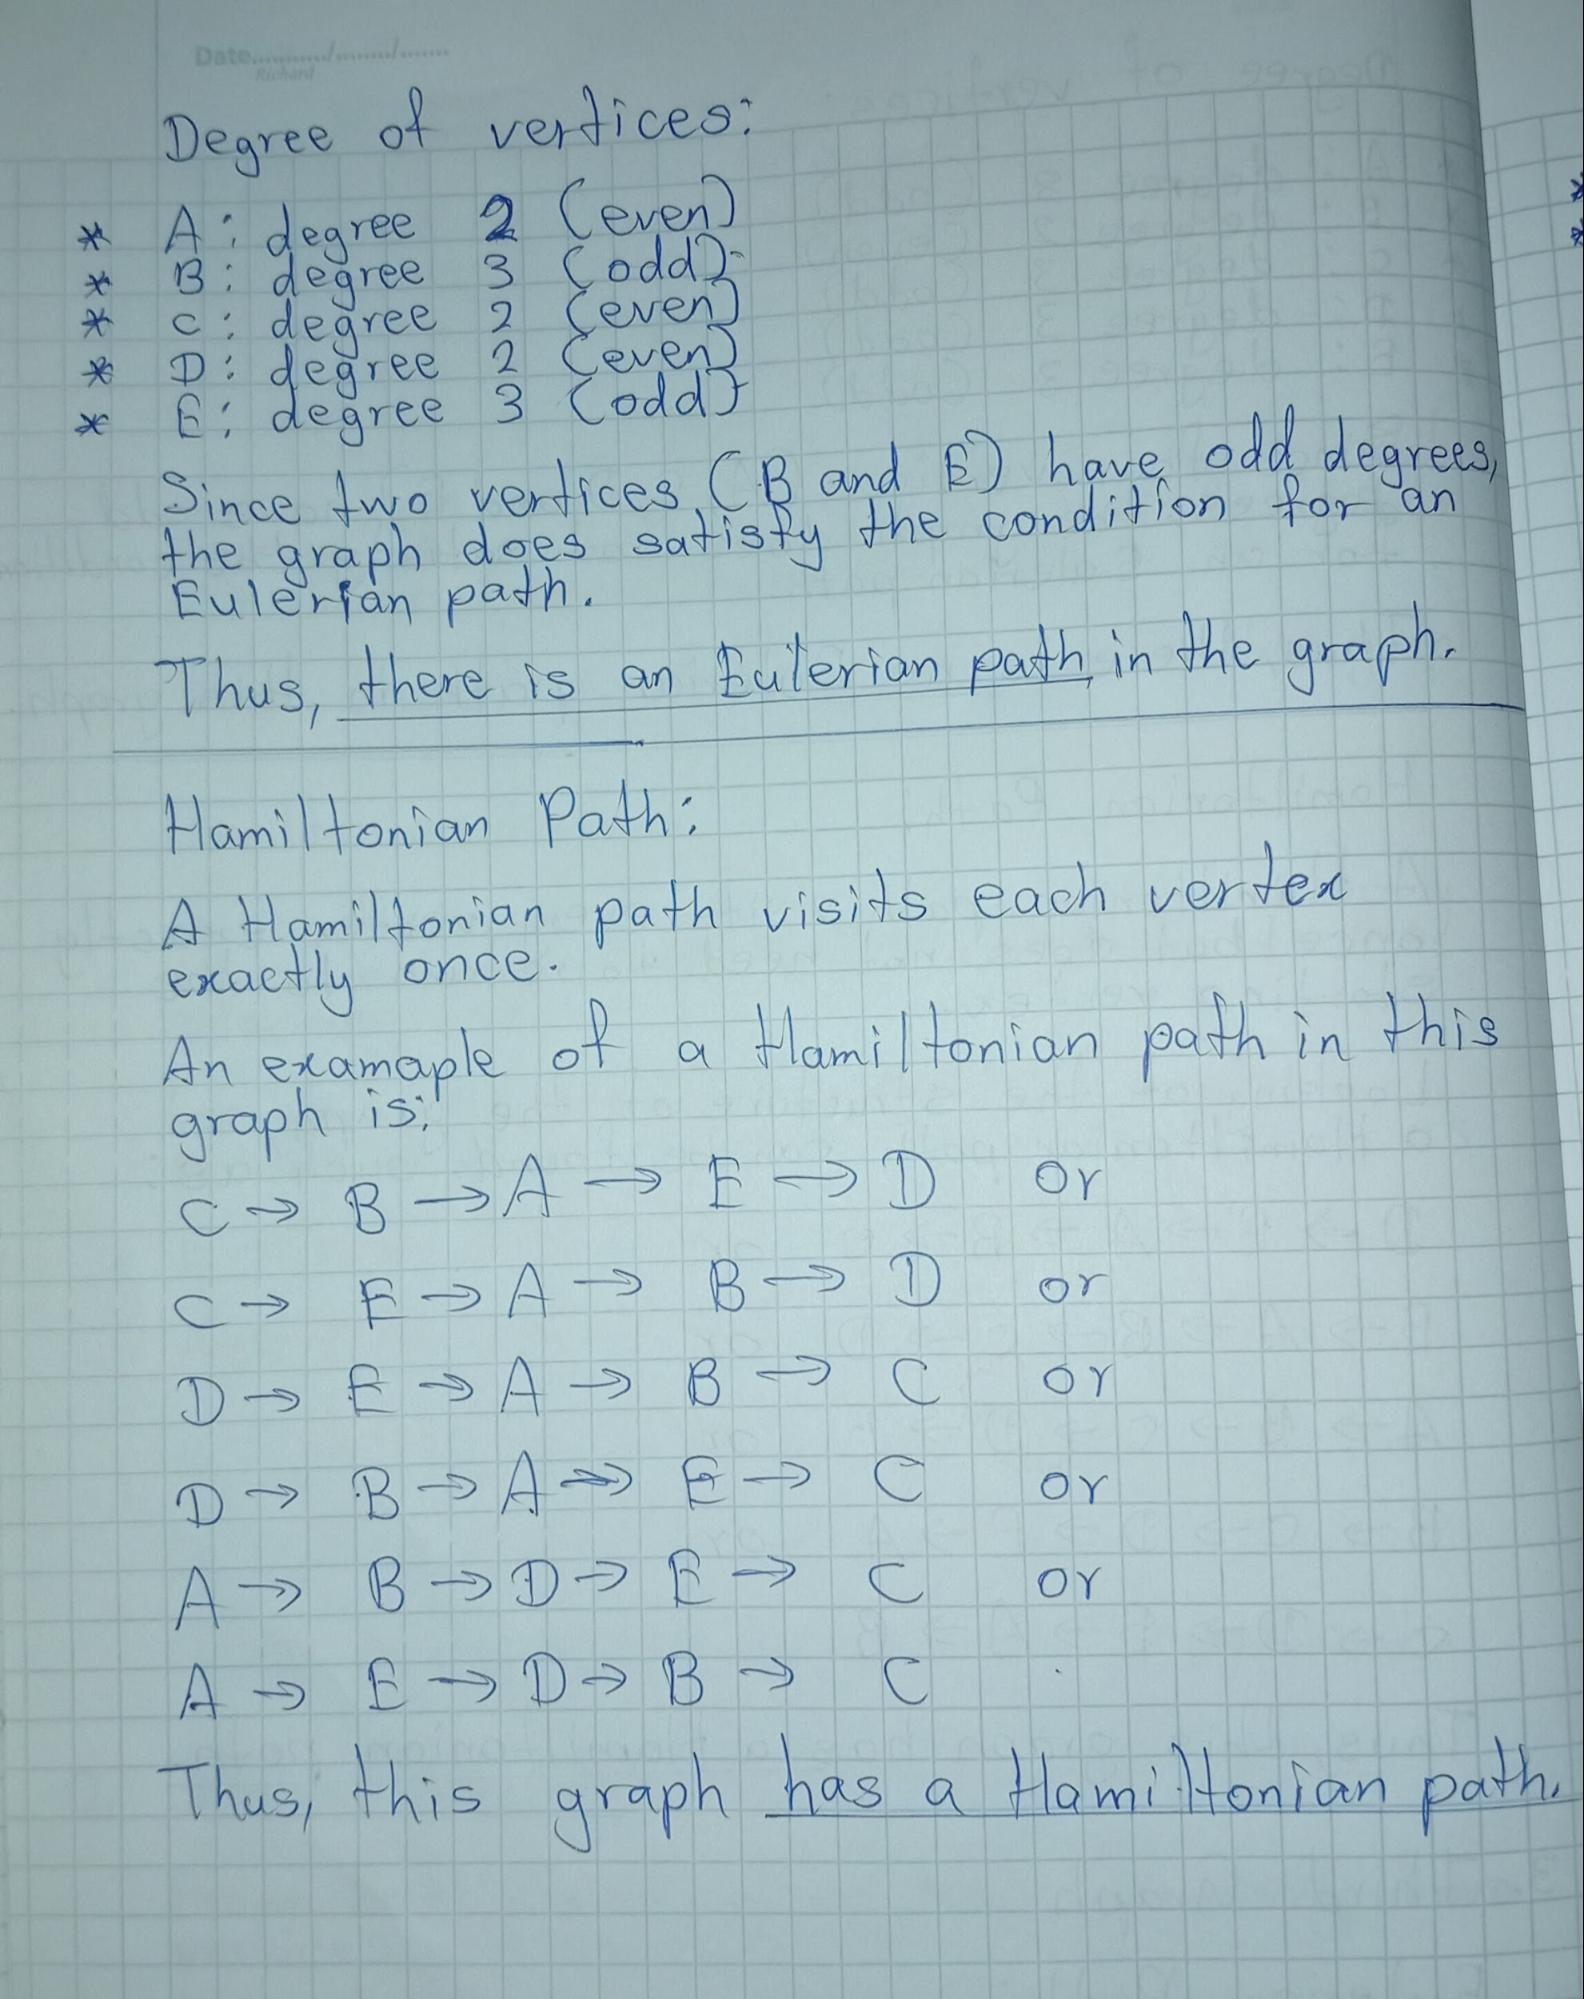 Date........./......../.......
Richard
Degree of vertices:
* A: degree 2 (even)
* B: degree 3 (odd)
* C: degree 2 (even)
* D: degree 2 (even)
* E: degree 3 (odd)
Since two vertices (B and E) have odd degrees,
the graph does satisfy the condition for an
Eulerian path.
Thus, there is an Eulerian path in the graph.
Hamiltonian Path:
A Hamiltonian path visits each vertex
exactly once.
An examaple of a Hamiltonian path in this
graph is:
C → B → A → E → D or
C → E → A → B → D or
D → E → A → B → C or
D → B → A → E → C or
A → B → D → E → C or
A → E → D → B → C
Thus, this graph has a Hamiltonian path.